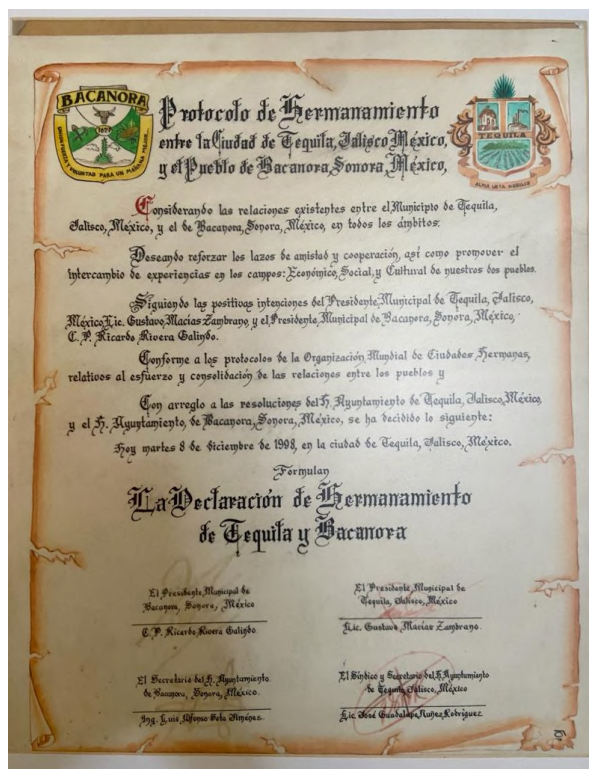 BACANORA
1627
VOLUNTAD PARA UN MAÑANA MEJOR
TEQUILA
Protocolo de Hermanamiento
entre la Ciudad de Tequila, Jalisco México,
y el Pueblo de Bacanora, Sonora, México,
Considerando las relaciones existentes entre el Municipio de Tequila,
Jalisco, México, y el de Bacanora, Sonora, México, en todos los ámbitos.
Deseando reforzar los lazos de amistad y cooperación, así como promover el
intercambio de experiencias en los campos: Económico, Social, y Cultural de nuestros dos pueblos.
Siguiendo las positivas intenciones del Presidente, Municipal de Tequila, Jalisco,
México, Lic. Gustavo Macías Zambrano, y el Presidente, Municipal de Bacanora, Sonora, México,
C. P. Ricardo Rivera Galindo.
Conforme a los protocolos de la Organización, Mundial de Ciudades Hermanas,
relativos al esfuerzo y consolidación de las relaciones entre los pueblos y
Con arreglo a las resoluciones del H. Ayuntamiento de Tequila, Jalisco, México,
y el H. Ayuntamiento, de Bacanora, Sonora, México, se ha decidido lo siguiente:
Hoy martes 8 de diciembre de 1998, en la ciudad de Tequila, Jalisco, México.
Formulan
La Declaración de Hermanamiento
de Tequila y Bacanora
El Presidente Municipal de
Bacanora, Sonora, México
C. P. Ricardo Rivera Galindo
El Presidente, Municipal de
Tequila, Jalisco, México
Lic. Gustavo Macías Zambrano.
El Secretario del H. Ayuntamiento
de Bacanora, Sonora, México.
Ing. Luis Alfonso Soto Jiménez.
El Síndico y Secretario del H. Ayuntamiento
de Tequila Jalisco, México
Lic. José Guadalupe Nuñez Rodríguez.